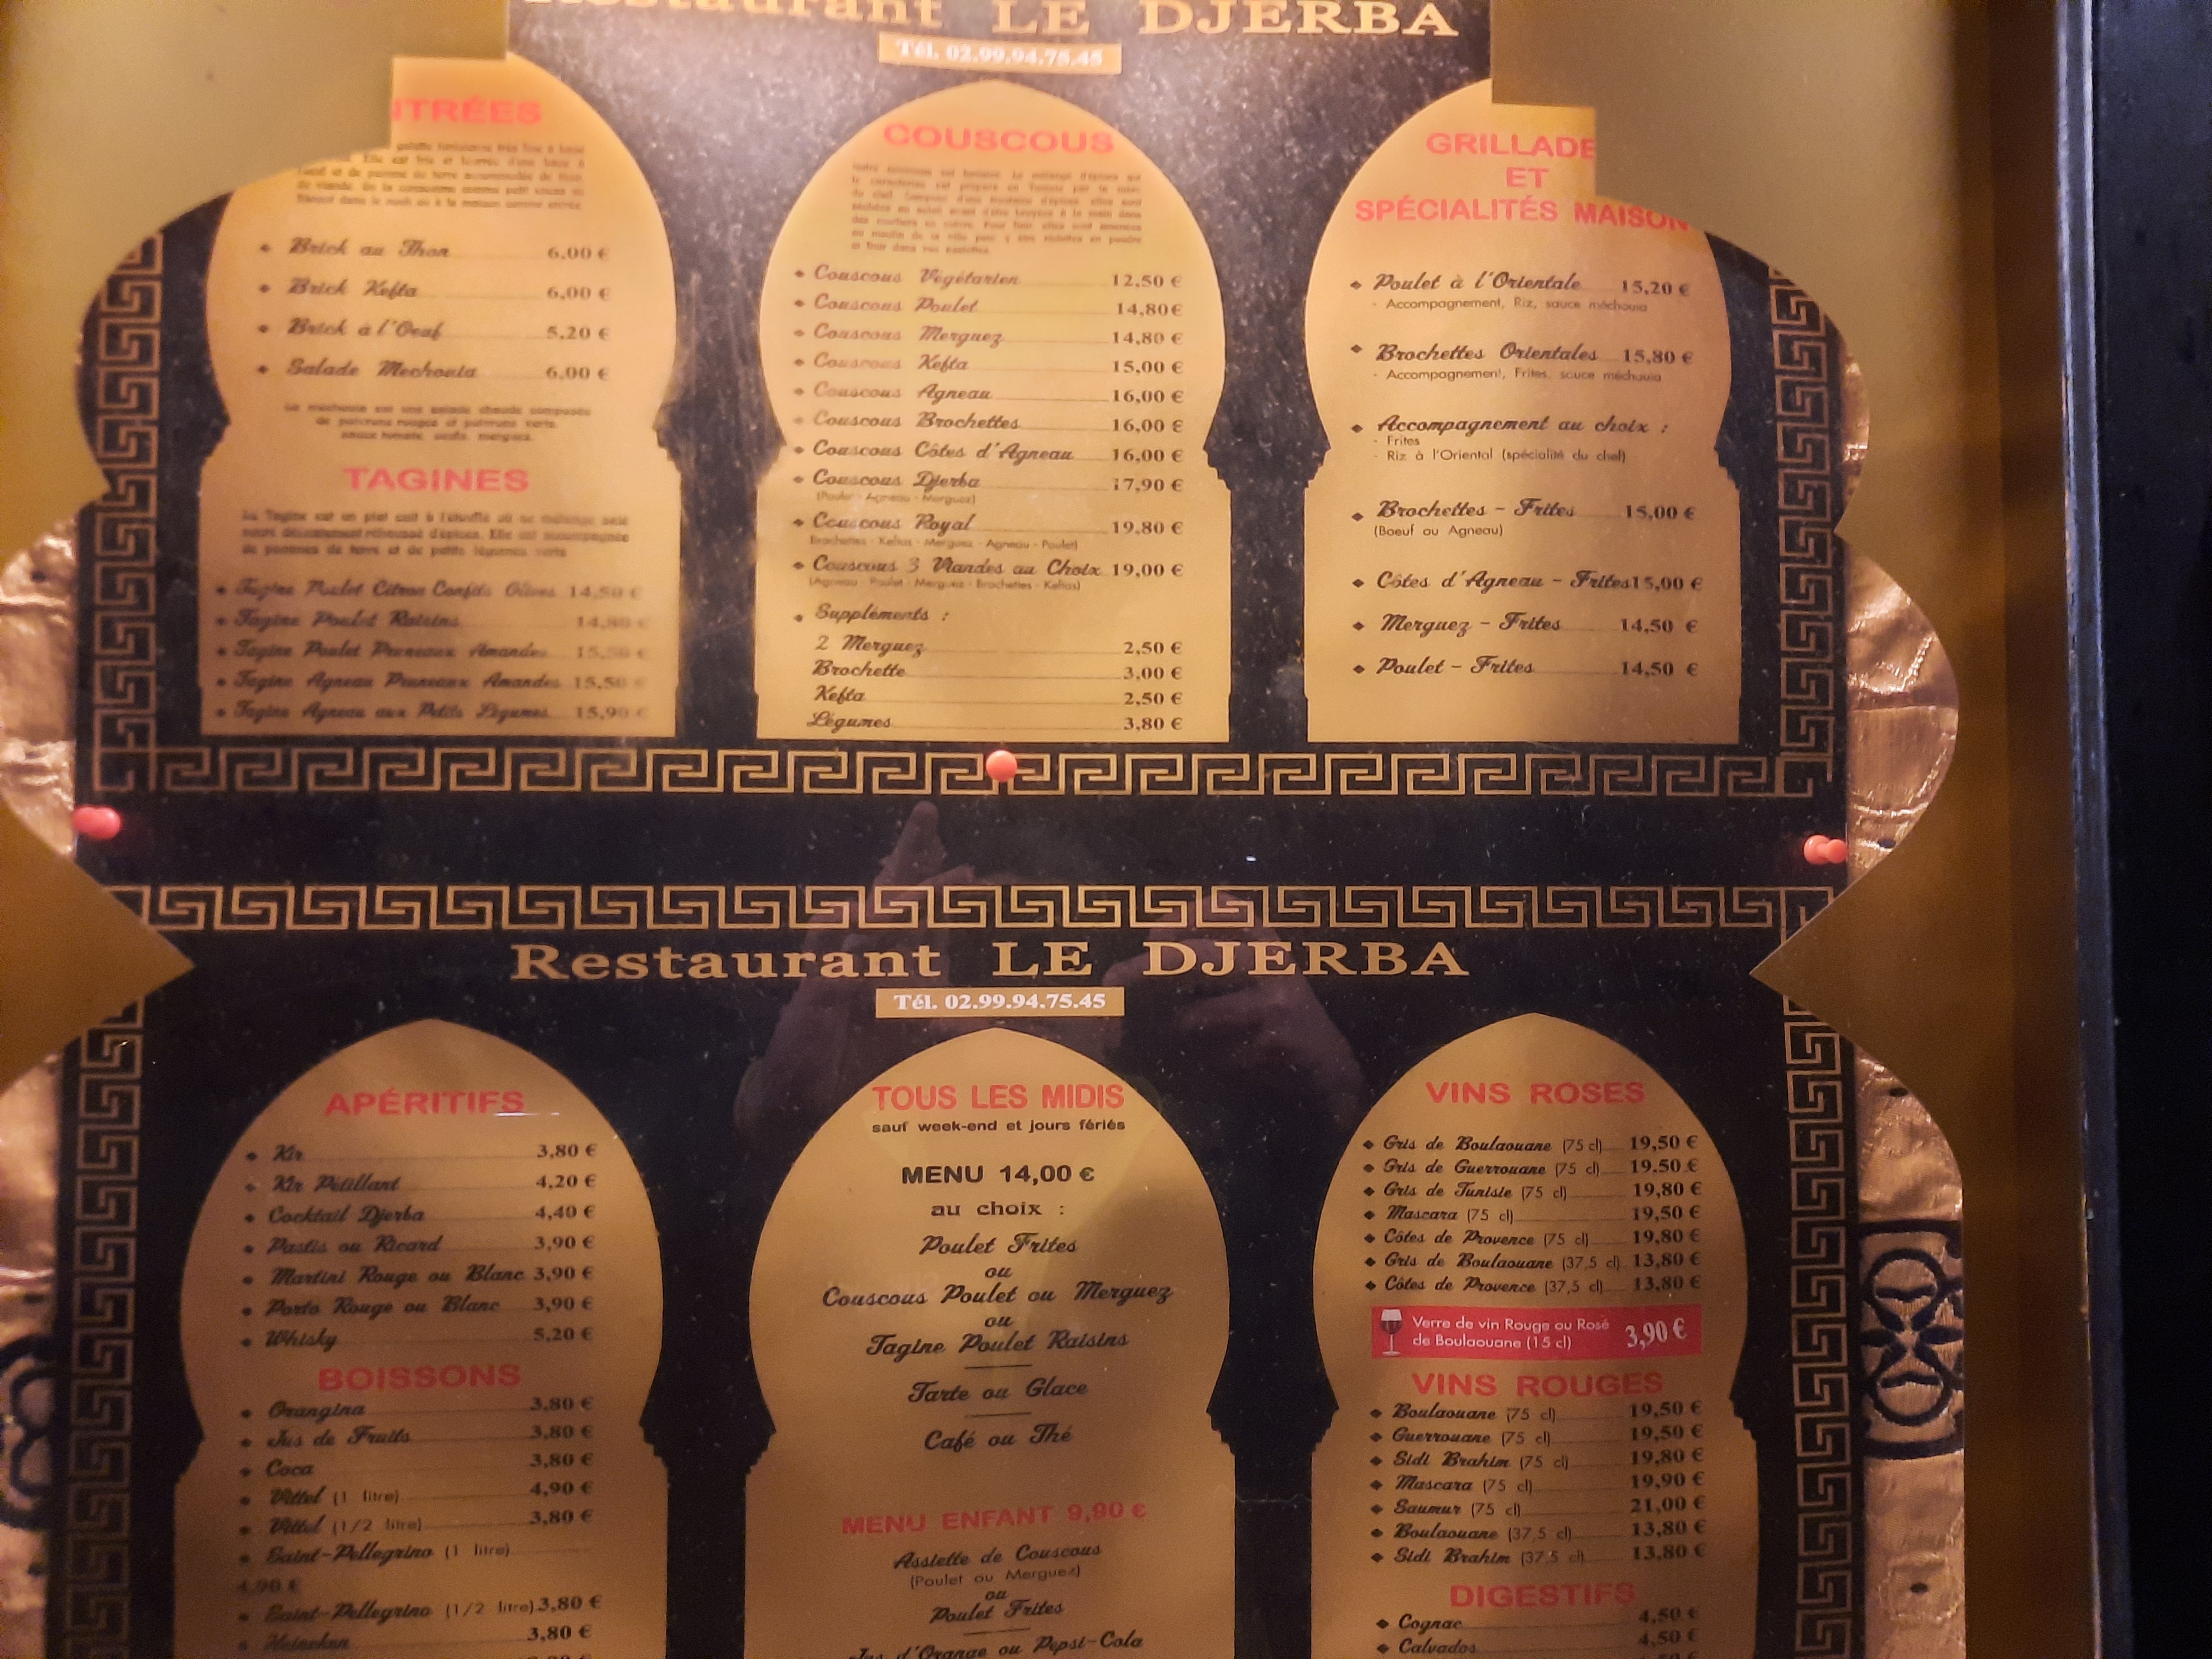 Restaurant LE DJERBA
Tél. 02.99.94.75.45
NTRÉES
Brick au Thon 6,00 €
Brick Kefta 6,00 €
Brick à l'Oeuf 5,20 €
Salade Mechouia 6,00 €
La mechouia est une salade chaude composée
de poivrons rouges et poivrons verts,
sauce tomate, oeufs, merguez.
TAGINES
La Tagine est un plat cuit à l'étouffé où se mélange salé
sucré délicatement réhaussé d'épices. Elle est accompagnée
de pommes de terre et de petits légumes verts
Tagine Poulet Citron Confits Olives 14,50 €
Tagine Poulet Raisins 14,80 €
Tagine Poulet Pruneaux Amandes 15,50 €
Tagine Agneau Pruneaux Amandes 15,50 €
Tagine Agneau aux Petits Légumes 15,90 €
COUSCOUS
Couscous Végétarien 12,50 €
Couscous Poulet 14,80€
Couscous Merguez 14,80 €
Couscous Kefta 15,00 €
Couscous Agneau 16,00 €
Couscous Brochettes 16,00 €
Couscous Côtes d'Agneau 16,00 €
Couscous Djerba 17,90 €
(Poulet - Agneau - Merguez)
Couscous Royal 19,80 €
Brochettes - Keftas - Merguez - Agneau - Poulet)
Couscous 3 Viandes au Choix 19,00 €
(Agneau - Poulet - Merguez - Brochettes - Keftas)
Suppléments :
2 Merguez 2,50 €
Brochette 3,00 €
Kefta 2,50 €
Légumes 3,80 €
GRILLADE
ET
SPÉCIALITÉS MAISON
Poulet à l'Orientale 15,20 €
- Accompagnement, Riz, sauce méchouia
Brochettes Orientales 15,80 €
- Accompagnement, Frites, sauce méchouia
Accompagnement au choix :
- Frites
- Riz à l'Oriental (spécialité du chef)
Brochettes - Frites 15,00 €
(Boeuf ou Agneau)
Côtes d'Agneau - Frites 15,00 €
Merguez - Frites 14,50 €
Poulet - Frites 14,50 €
Restaurant LE DJERBA
Tél. 02.99.94.75.45
APÉRITIFS
Kir 3,80 €
Kir Pétillant 4,20 €
Cocktail Djerba 4,40 €
Pastis ou Ricard 3,90 €
Martini Rouge ou Blanc 3,90 €
Porto Rouge ou Blanc 3,90 €
Whisky 5,20 €
BOISSONS
Orangina 3,80 €
Jus de Fruits 3,80 €
Coca 3,80 €
Vittel (1 litre) 4,90 €
Vittel (1/2 litre) 3,80 €
Saint-Pellegrino (1 litre)
4,90 €
Saint-Pellegrino (1/2 litre) 3,80 €
Heineken 3,80 €
TOUS LES MIDIS
sauf week-end et jours fériés
MENU 14,00 €
au choix :
Poulet Frites
ou
Couscous Poulet ou Merguez
ou
Tagine Poulet Raisins
Tarte ou Glace
Café ou Thé
MENU ENFANT 9,90 €
Assiette de Couscous
(Poulet ou Merguez)
ou
Poulet Frites
Jus d'Orange ou Pepsi-Cola
VINS ROSES
Gris de Boulaouane (75 cl) 19,50 €
Gris de Guerrouane (75 cl) 19.50 €
Gris de Tunisie (75 cl) 19,80 €
Mascara (75 cl) 19,50 €
Côtes de Provence (75 cl) 19,80 €
Gris de Boulaouane (37,5 cl) 13,80 €
Côtes de Provence (37,5 cl) 13,80 €
Verre de vin Rouge ou Rosé
de Boulaouane (15 cl) 3,90 €
VINS ROUGES
Boulaouane (75 cl) 19,50 €
Guerrouane (75 cl) 19,50 €
Sidi Brahim (75 cl) 19,80 €
Mascara (75 cl) 19,90 €
Saumur (75 cl) 21,00 €
Boulaouane (37,5 cl) 13,80 €
Sidi Brahim (37,5 cl) 13,80 €
DIGESTIFS
Cognac 4,50 €
Calvados 4,50 €